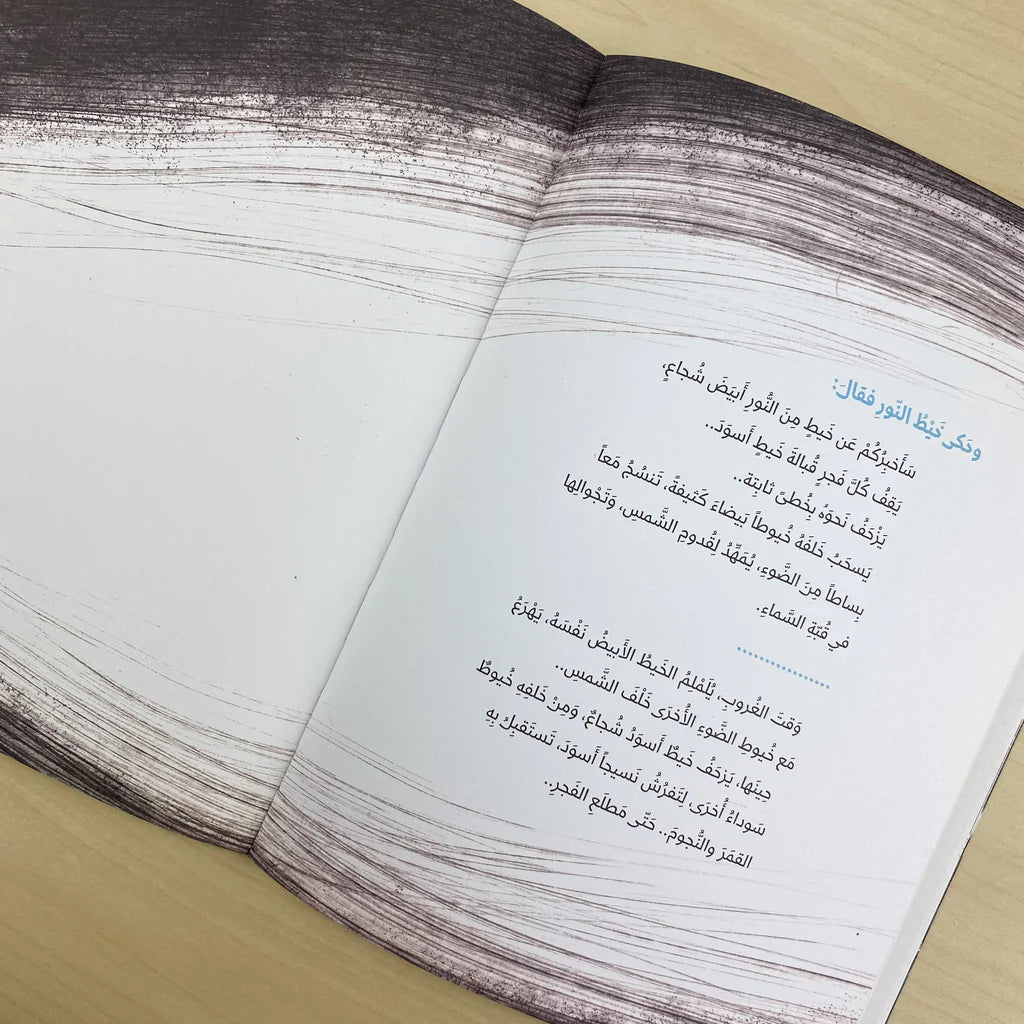 وحَكى خَيْطُ النّورِ فقالَ:
سَأُخبِرُكُمْ عَن خَيطٍ مِنَ النُّورِ أَبيَضَ شُجاعٍ،
يَقِفُ كُلَّ فَجرٍ قُبالةَ خَيطٍ أَسوَدَ..
يَزْحَفُ نَحوَهُ بِخُطىً ثابِتة..
يَسحَبُ خَلفَهُ خُيوطاً بَيضاءَ كَثيفةً، تَنسُجُ مَعاً
بِساطاً مِنَ الضَّوءِ، يُمَهِّدُ لِقُدومِ الشَّمسِ، وَتَجْوالِها
في قُبّةِ السَّماءِ.
.................
وَقتَ الغُروبِ، يُلَمْلِمُ الخَيطُ الأَبيضُ نَفْسَهُ، يَهْرَعُ
مَع خُيوطِ الضَّوءِ الأُخرَى خَلْفَ الشَّمسِ..
حِينَها، يَزحَفُ خَيطٌ أَسوَدُ شُجاعٌ، وَمِنْ خَلفِهِ خُيوطٌ
سَوداءُ أُخرَى لِتَفرُشُ نَسيجاً أَسودَ، تَستَقبِلُ بِهِ
القمَرَ والنُّجومَ.. حَتّى مَطلَعِ الفَجرِ..